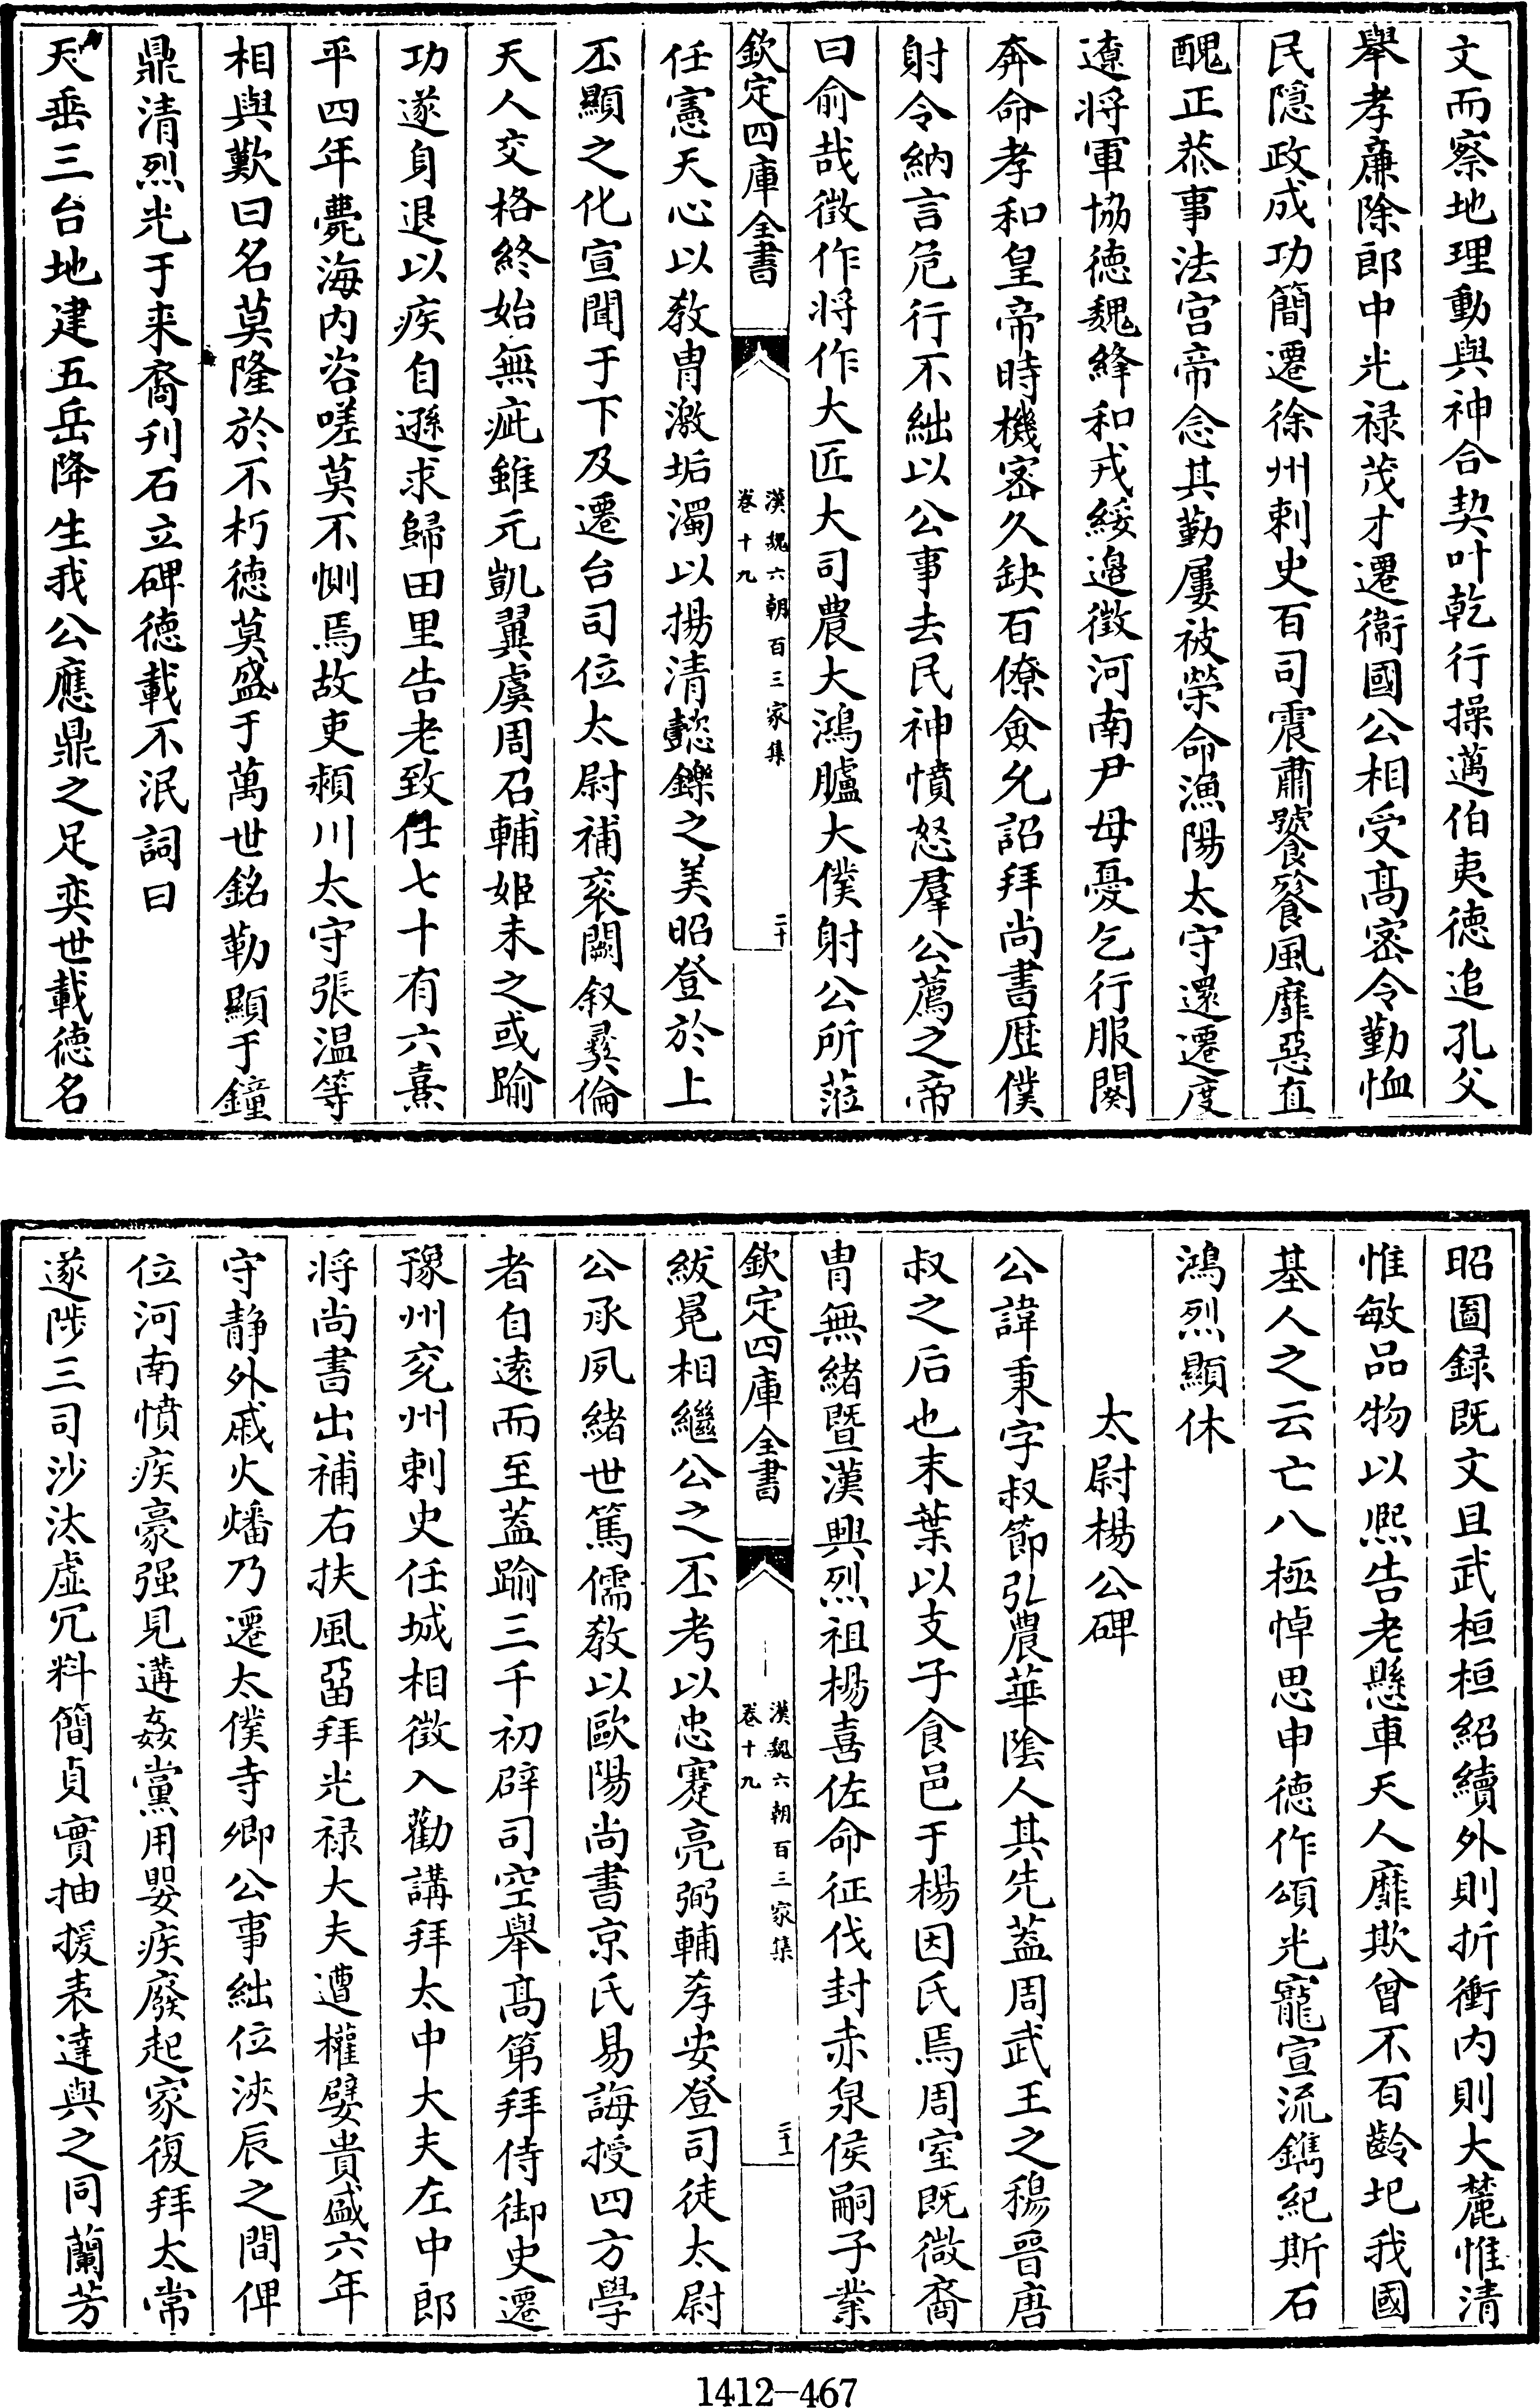 文而察地理動與神合契叶乾行操邁伯夷徳追孔父
舉孝亷除郎中光禄茂才遷衞國公相受髙宻令勤恤
民隠政成功簡遷徐州刺史百司震肅饕餮風靡惡直
醜正恭事法宫帝念其勤屢被榮命漁陽太守還遷度
遼将軍協徳魏絳和戎綏邉徵河南尹母憂乞行服闋
奔命孝和皇帝時機宻久缺百僚僉允詔拜尚書歴僕
射令納言危行不絀以公事去民神憤怒羣公薦之帝
曰俞哉徵作将作大匠大司農大鴻臚大僕射公所蒞
欽定四庫全書
漢魏六朝百三家集
卷十九
二十
任憲天心以教胄激垢濁以揚清懿鑠之美昭登於上
丕顯之化宣聞于下及遷台司位太尉補衮闕叙彛倫
天人交格終始無疵雖元凱翼虞周召輔姬未之或踰
功遂身退以疾自遜求歸田里告老致仕七十有六熹
平四年薨海内咨嗟莫不惻焉故吏潁川太守張温等
相與歎曰名莫隆於不朽徳莫盛于萬世銘勒顯于鐘
鼎清烈光于来裔刋石立碑徳載不泯詞曰
天垂三台地建五岳降生我公應鼎之足奕世載徳名
昭圖録既文且武桓桓紹續外則折衝内則大麓惟清
惟敏品物以熈告老懸車天人靡欺曾不百齡圮我國
基人之云亡八極悼思申徳作頌光寵宣流鐫紀斯石
鴻烈顯休
太尉楊公碑
公諱秉字叔節弘農華隂人其先葢周武王之穆晉唐
叔之后也末葉以支子食邑于楊因氏焉周室既微裔
胄無緒暨漢興烈祖楊喜佐命征伐封赤泉侯嗣子業
欽定四庫全書
漢魏六朝百三家集
卷十九
二十一
紱冕相繼公之丕考以忠蹇亮弼輔孝安登司徒太尉
公承夙緒世篤儒教以歐陽尚書京氏易誨授四方學
者自逺而至葢踰三千初辟司空舉髙第拜侍御史遷
豫州兖州刺史任城相徵入勸講拜太中大夫左中郎
将尚書出補右扶風畱拜光禄大夫遭權嬖貴盛六年
守静外戚火燔乃遷太僕寺卿公事絀位浹辰之間俾
位河南憤疾豪强見遘姦黨用嬰疾廢起家復拜太常
遂陟三司沙汰虚冗料簡貞實抽援表達與之同蘭芳
1412—467